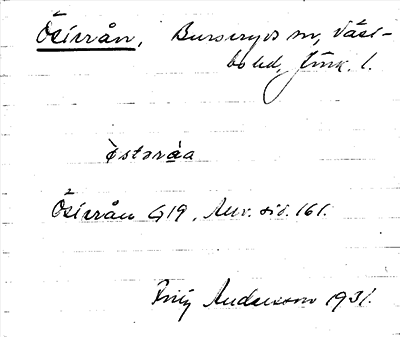 Österån, Burseryds sn, Väst-
bo hd, Jönk. l.
östəråa
Österån G19, Anv. sid. 161.
Andersson 1931.